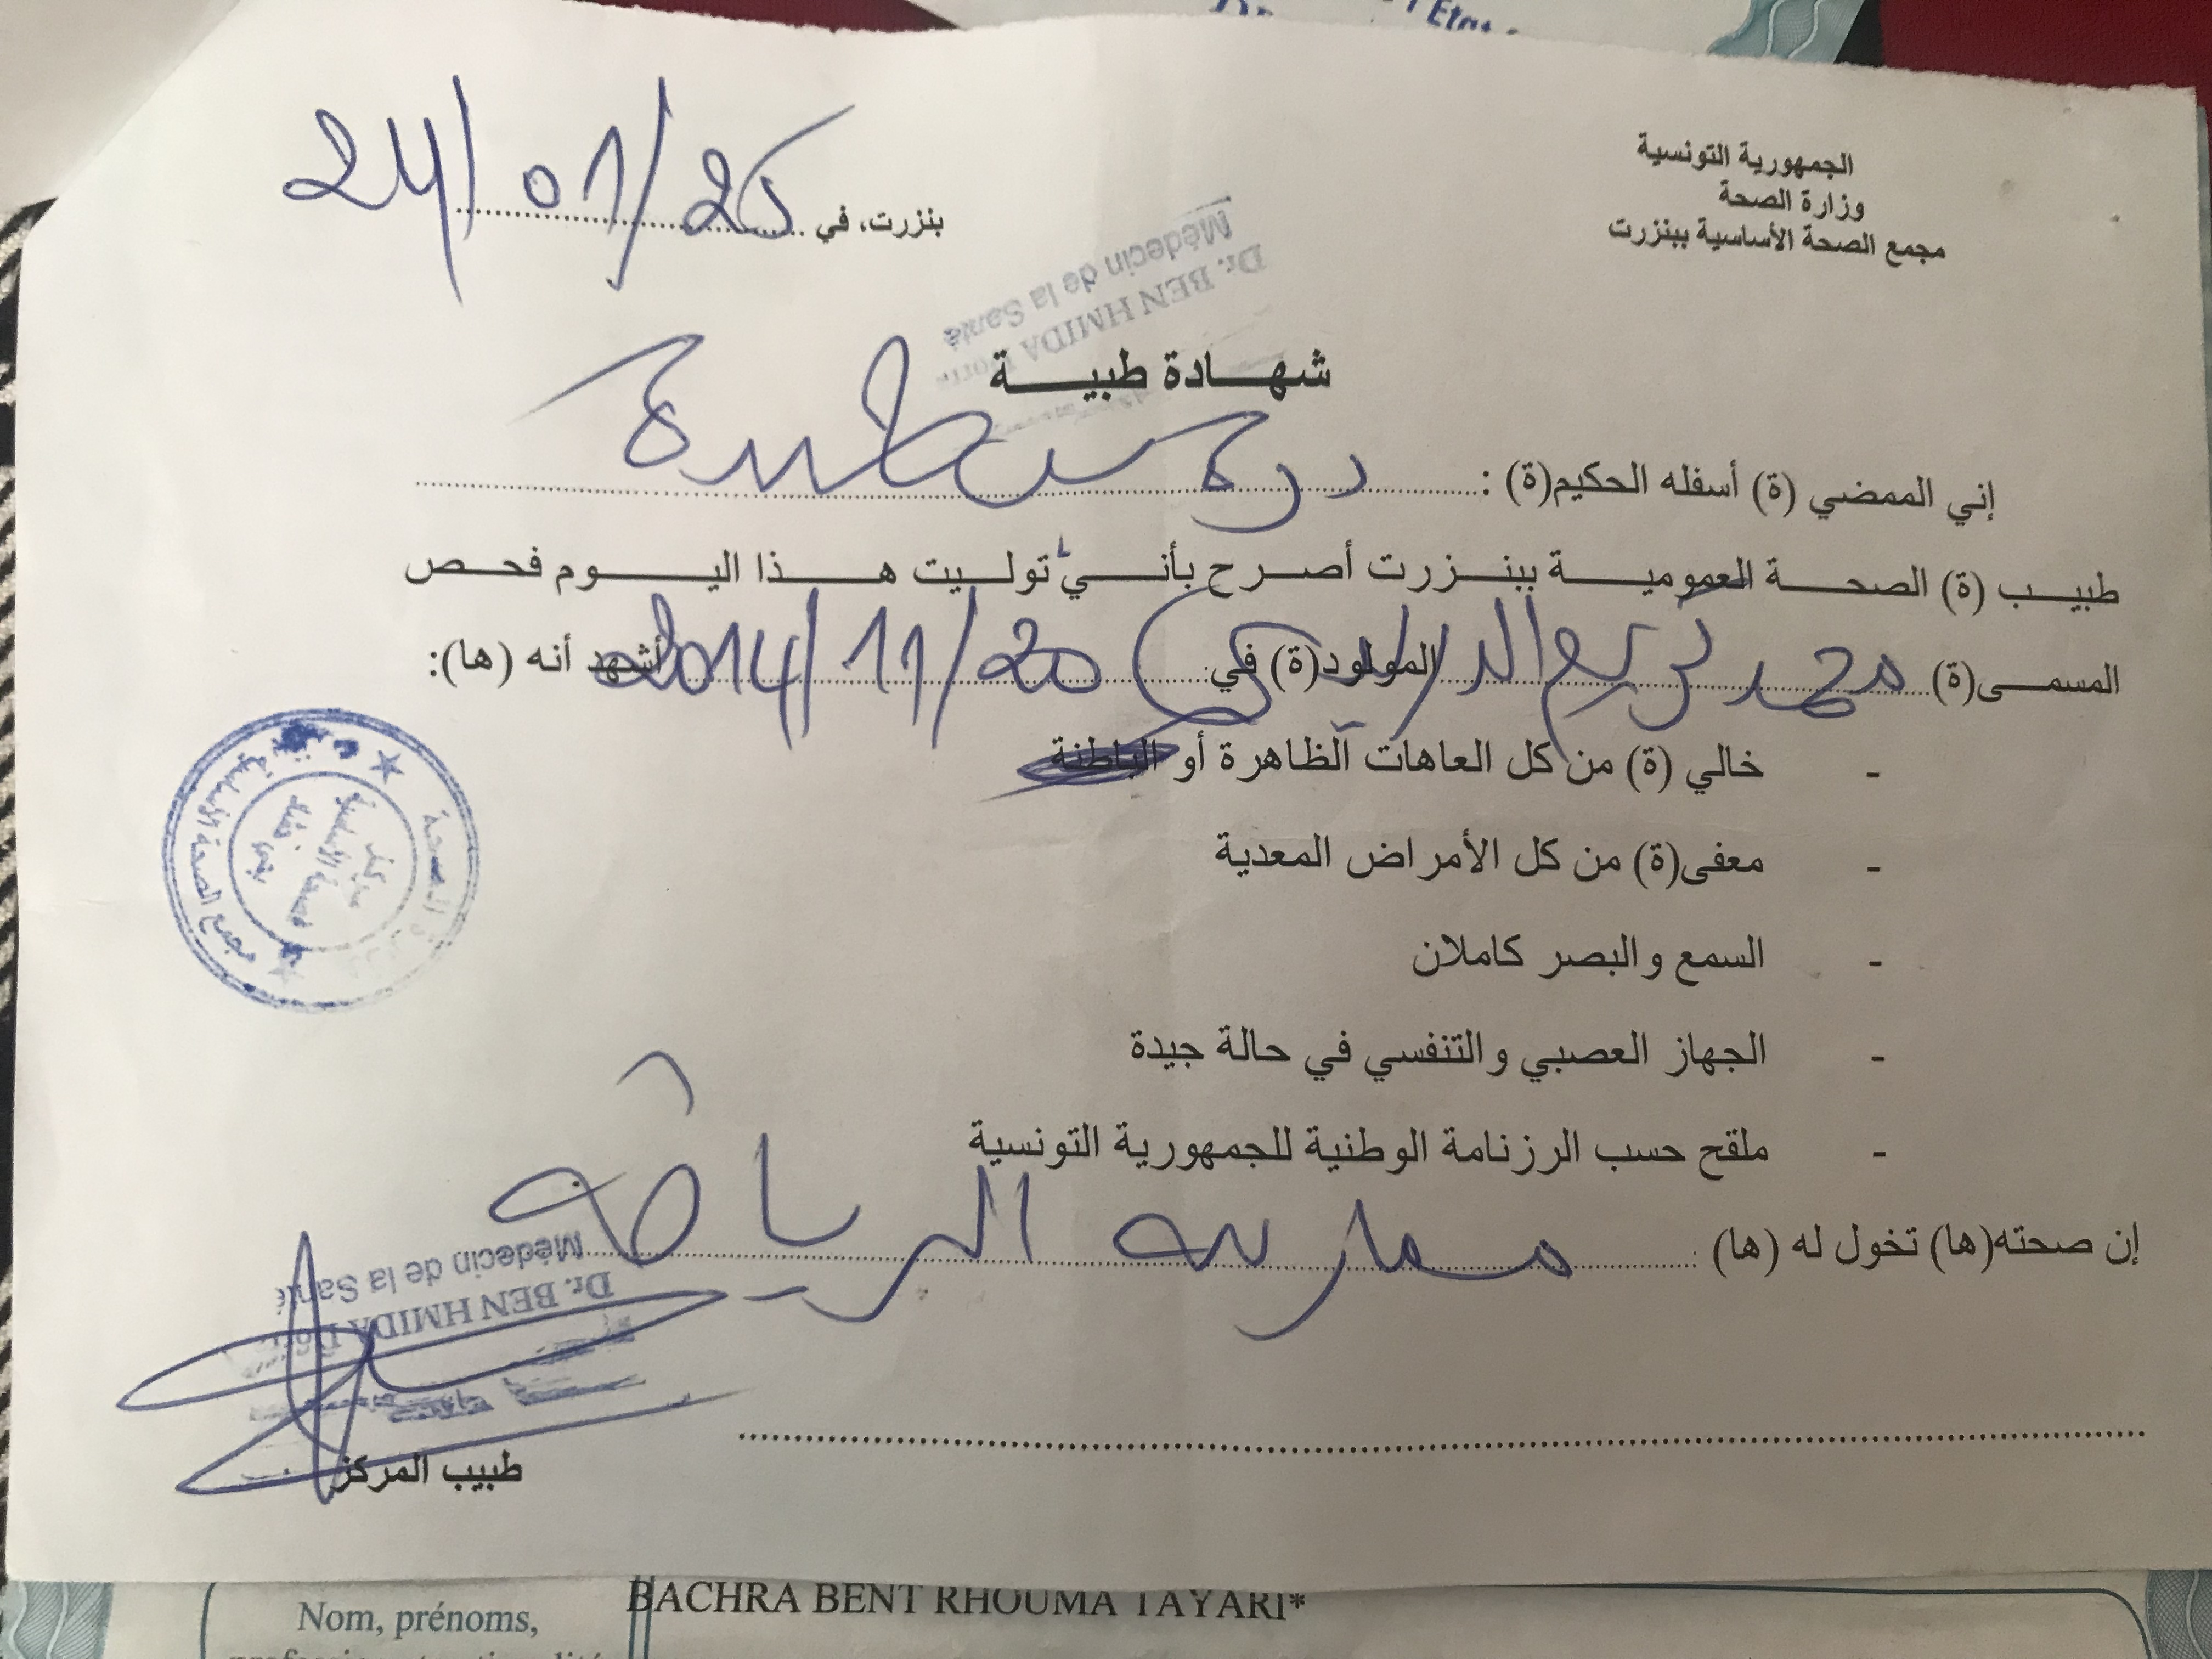 الجمهورية التونسية
وزارة الصحة
مجمع الصحة الأساسية ببنزرت
بنزرت، في 24/01/25
Dr. BEN HMIDA
Médecin de la Santé
شهادة طبية
إني الممضي (ة) أسفله الحكيم(ة) :
طبيب (ة) الصحة العمومية ببنزرت أصرح بأني توليت هذا اليوم فحص
المسمى(ة) محمد كريم المولود(ة) في 2014/11/20 أشهد أنه (ها):
- خالي (ة) من كل العاهات الظاهرة أو الباطنة
- معفى(ة) من كل الأمراض المعدية
- السمع والبصر كاملان
- الجهاز العصبي والتنفسي في حالة جيدة
- ملقح حسب الرزنامة الوطنية للجمهورية التونسية
إن صحته(ها) تخول له (ها) ممارسة الرياضة
Dr. BEN HMIDA
Médecin de la Santé
طبيب المركز
مجمع الصحة الأساسية
BACHRA BENT RHOUMA TAYARI*
Nom, prénoms,